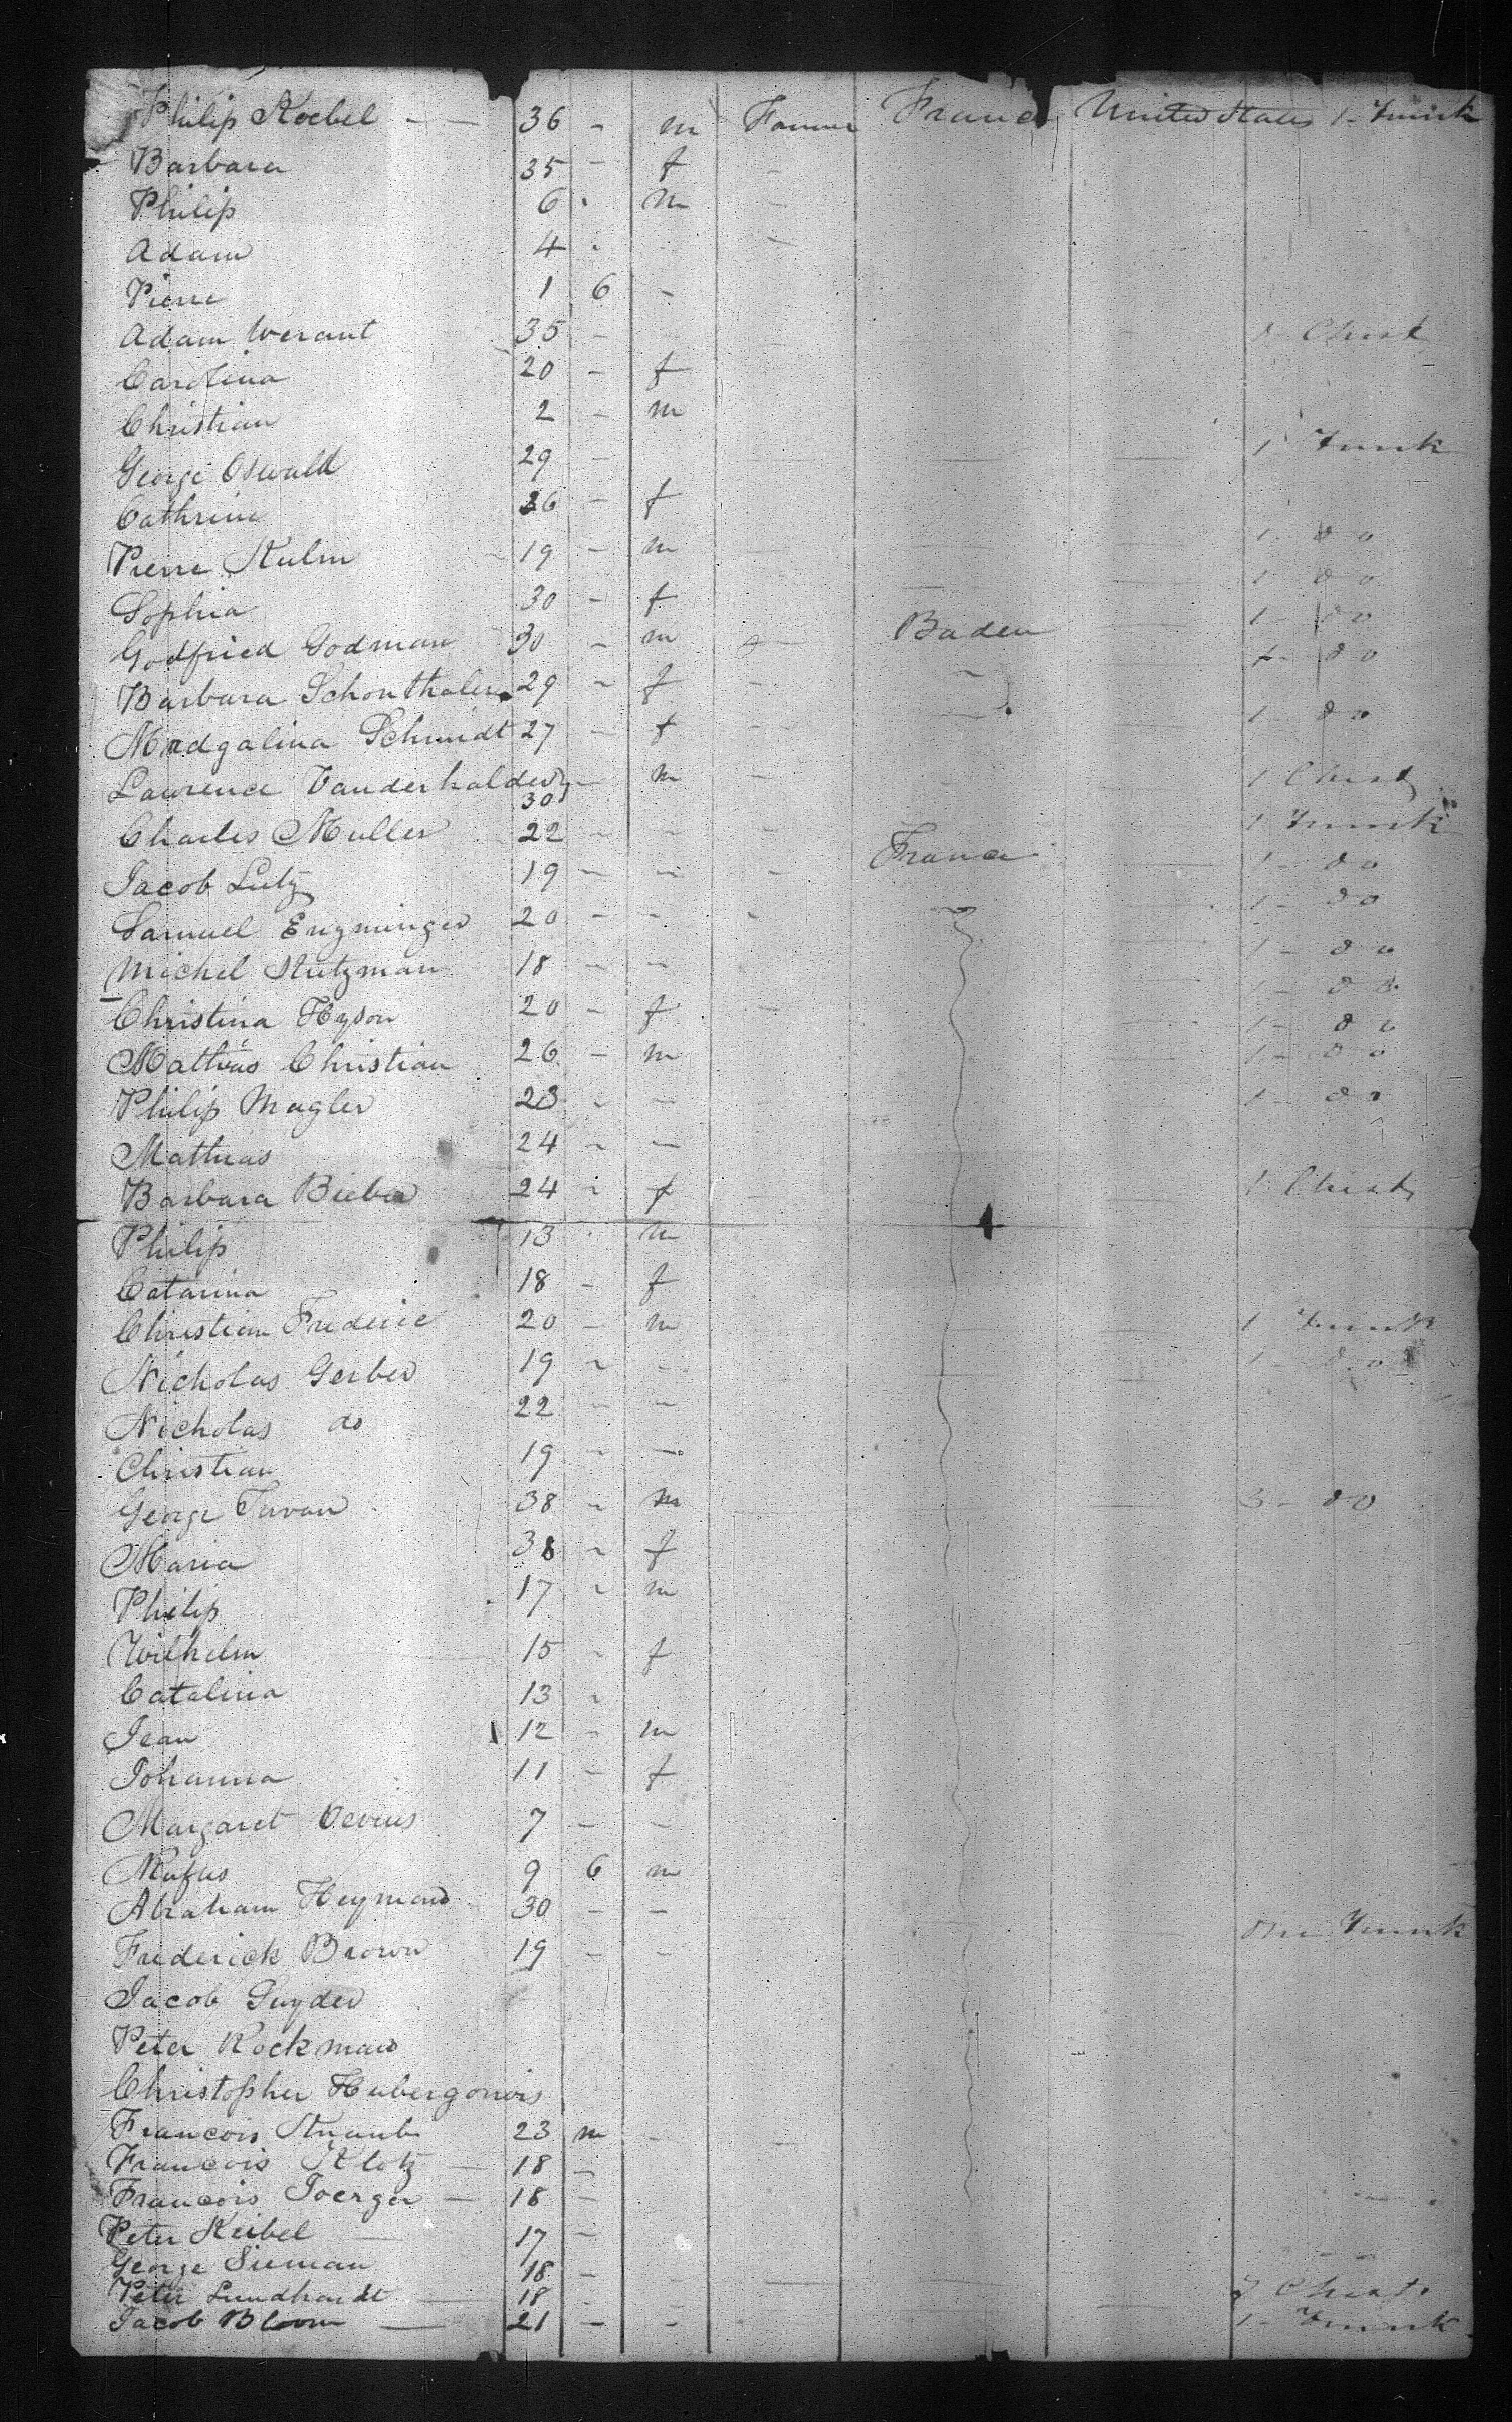 Philip Koebel — 36 - m Farmer France United States 1- Trunk
Barbara 35 - f -
Philip 6 - m -
Adam 4 - - -
Pierre 1 6 -
Adam Werant 35 - - 1 Chest
Carolina 20 - f
Christian 2 - m
George Oswald 29 - 1 Trunk
Cathrine 36 - f
Pierre Kulm 19 - m - 1- do
Sophia 30 - f 1- do
Godfried Godman 30 - m - Baden 1- do
Barbara Schonthaler 29 - f - - 1- do
Madgalina Schmidt 27 - f - - 1- do
Laurence Vanderhalden 30 - m - - 1 Chest
Charles Muller 22 - - - 1 Trunk
Jacob Lutz 19 - - - France 1- do
Samuel Enzminger 20 - - - 1- do
Michel Stutzman 18 - - 1- do
Christina Hyson 20 - f - 1- do
Mathias Christian 26 - m 1- do
Philip Magler 23 - - 1- do
Mathias 24 - -
Barbara Bieber 24 - f 1 Chest
Philip 13 - m
Catarina 18 - f
Christian Frederic 20 - m 1 Trunk
Nicholas Gerber 19 - - 1- do
Nicholas do 22 - -
Christian 19 - -
George 38 - m 3- do
Maria 38 - f
Philip 17 - m
Wilhelm 15 - f
Catalina 13 -
Jean 12 - m
Johanna 11 - f
Margaret 7 - -
Rufus 9 6 m
Abraham Heyman 30 - -
Frederick Brown 19 - - One Trunk
Jacob
Peter Rockman
Christopher
Francois Straub 23 m -
Francois Klotz — 18 -
Francois Joerger — 18 -
Peter Keibel — 17 -
George Sieman 18 - -
Peter Lundhardt — 18 - - Chest
Jacob Bloom — 21 - - 1- Trunk